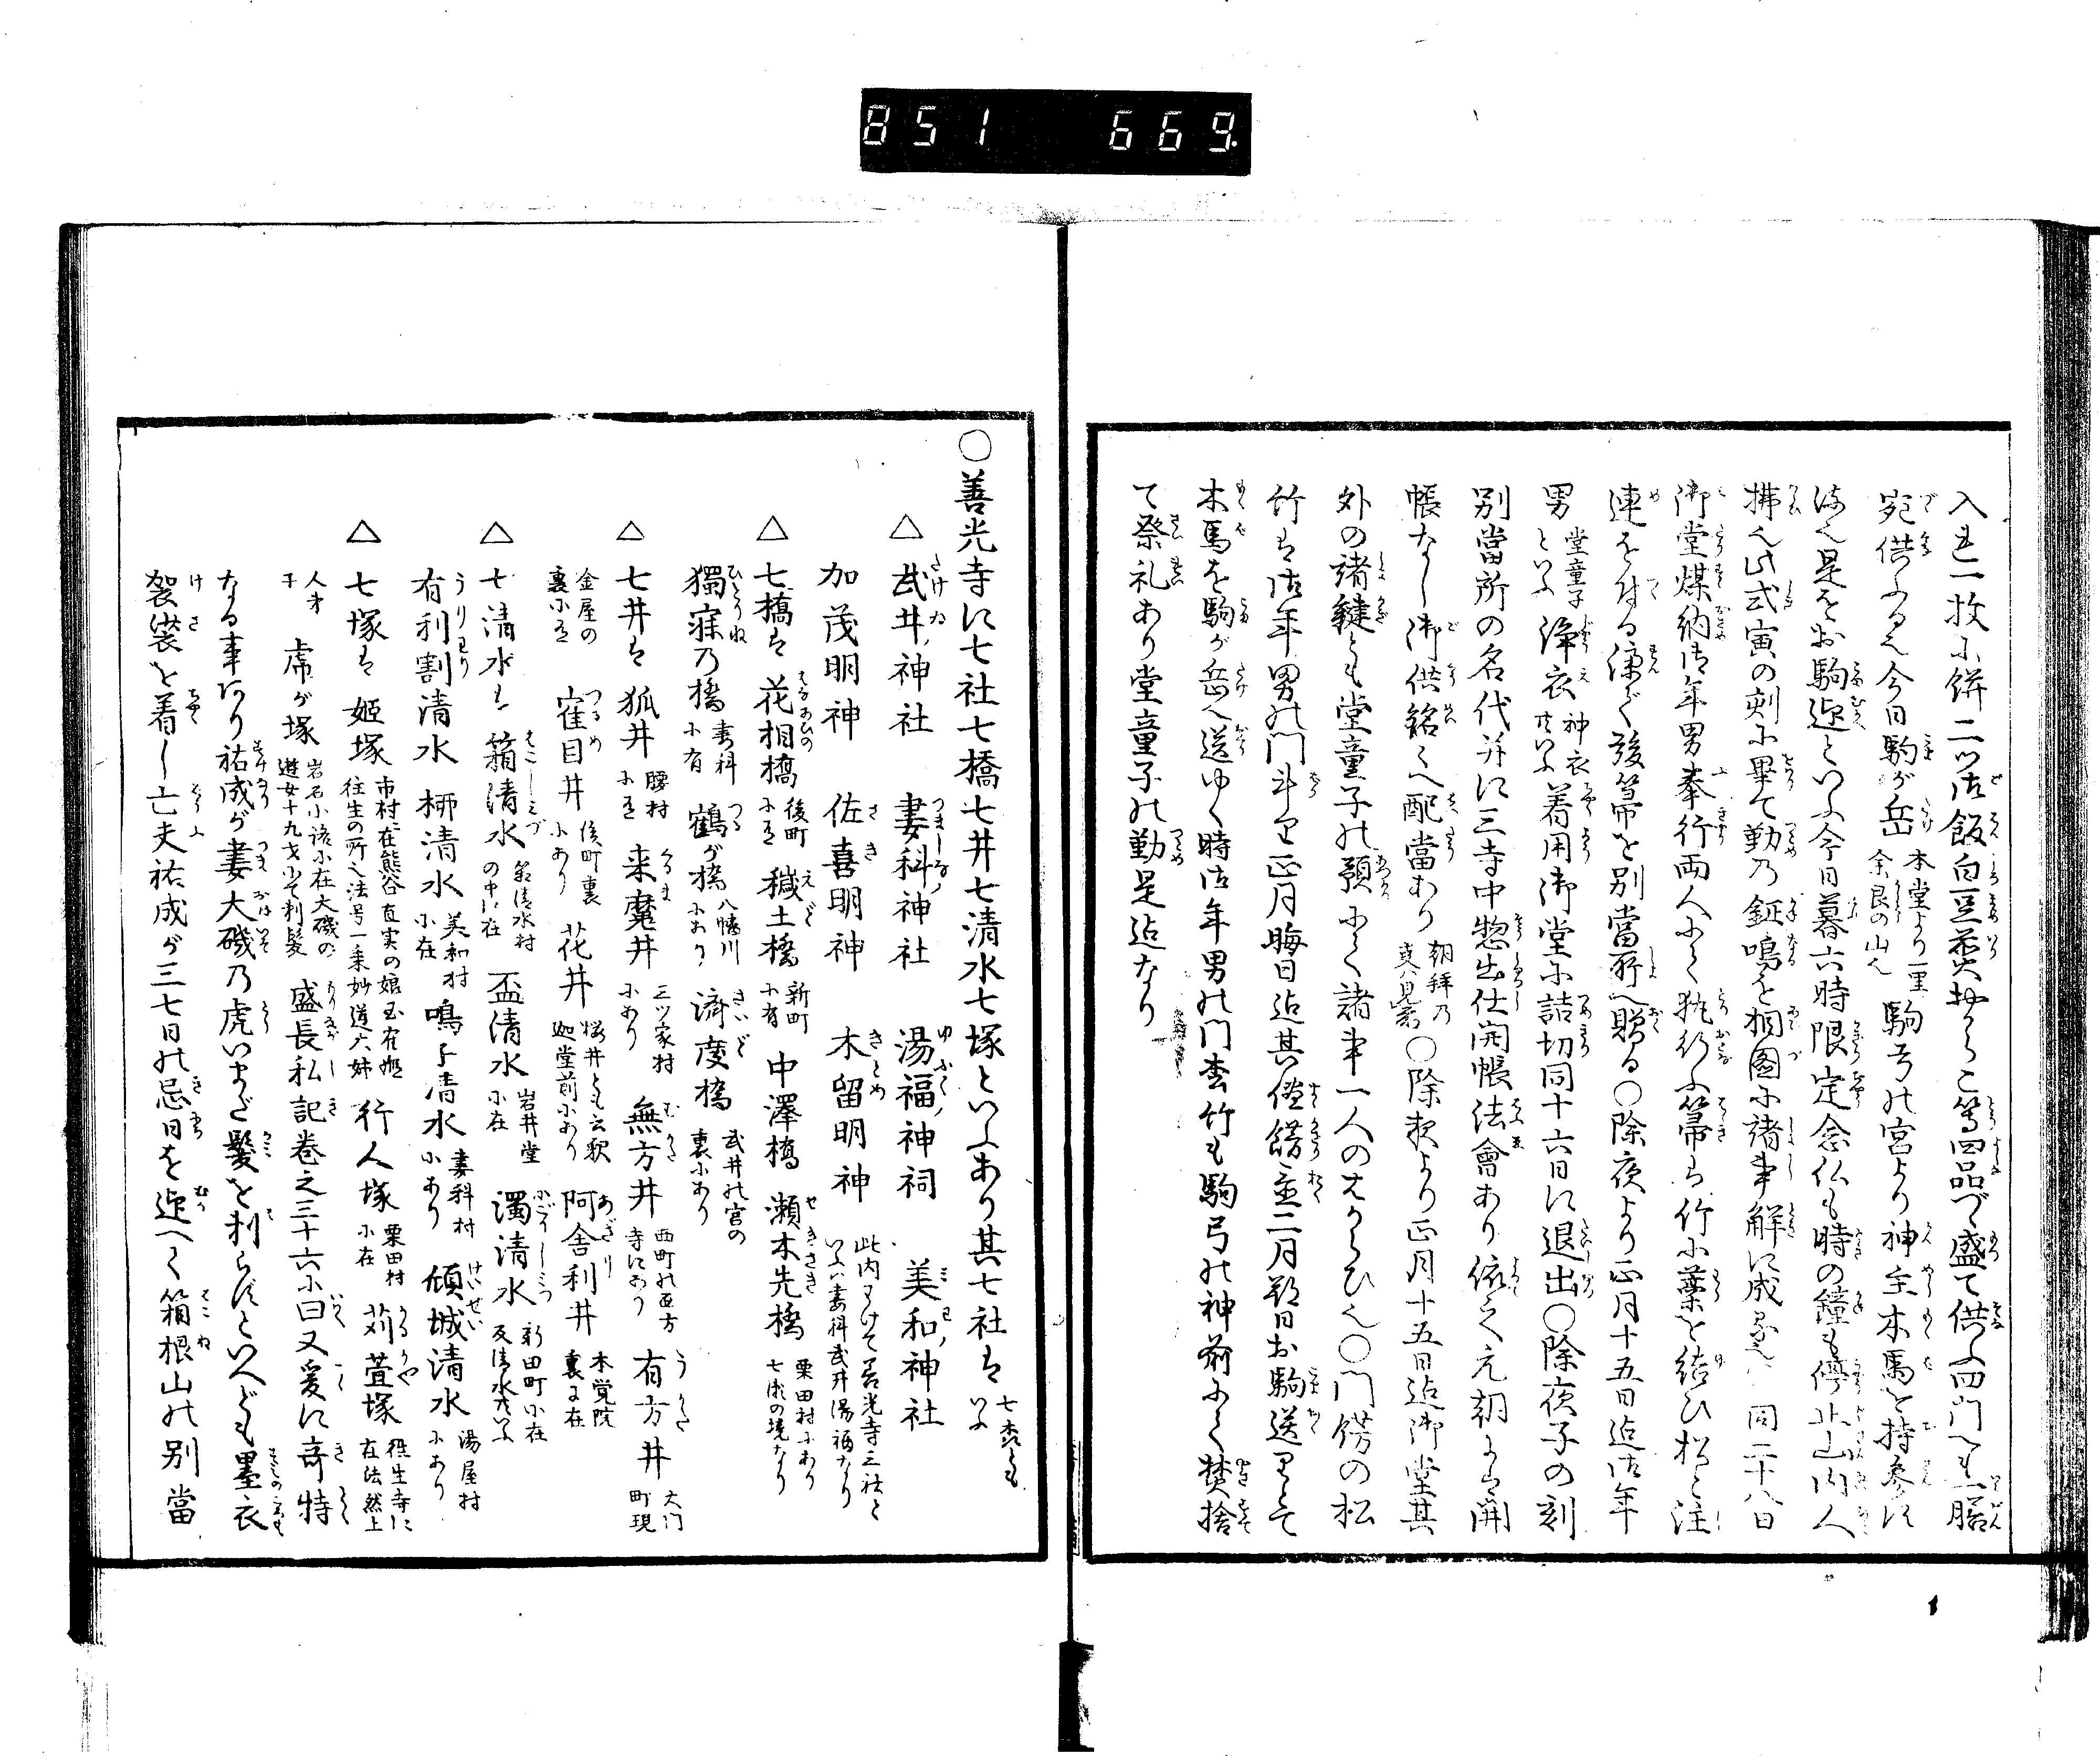 851 669.
入 一枚小餅二ツ 飯白豆 四品づゝ盛て供ふ四門へも一膳
宛供ふる也今日駒が岳 本堂より一里余良の山也 駒弓の宮より神主木馬を持参す
也是をお駒迎といふ今日暮六時限定念仏も時の鐘も停止山内人
拂也此式寅の刻に畢て勤の鉦鳴を相圖に諸事解に成る也 同二十八日
御堂煤納 年男奉行両人 箒は竹に藁を結ひ松と注
連を付る 後箒を別當所へ贈る〇除夜より正月十五日迄 年
男 堂童子といふ 浄衣 神衣 着用御堂に詰切同十六日に退出〇除夜子の刻
別當所の名代并に三寺中惣出仕開帳法會あり依之元朝は開
帳なし御供銘々へ配當あり 朝拝の 〇除夜より正月十五日迄御堂其
外の諸鍵とも堂童子の預にて諸事一人のはからひ也〇門餝の松
竹は 年男の門斗り正月晦日迄其儘餝置二月朔日お駒送りとて
木馬を駒が岳へ送ゆく時 年男の門松竹も駒弓の神前にて焚捨
て祭礼あり堂童子の勤是迄なり
〇善光寺に七社七橋七井七清水七塚といふあり其七社は
△武井ノ神社 妻科ノ神社 湯福ノ神祠 美和ノ神社
加茂明神 佐喜明神 木留明神 此内わけて善光寺三社といふは妻科武井湯福なり
△七橋は 花相橋 後町に有 穢土橋 新町に有 中澤橋 瀬木先橋 栗田村にあり七瀬の境なり
獨寐の橋 妻科に有 鶴が橋 八幡川にあり 濟度橋 武井の宮の裏にあり
△七井は 狐井 腰村に有 来麾井 三ツ家村にあり 無方井 西町の西方寺にあり 有方井 大门町現
金屋の裏に有 窪目井 後町裏にあり 花井 桜井とも云釈迦堂前にあり 阿舎利井 本覚院裏に在
△七清水は 箱清水 箱清水村の中に在 盃清水 岩井堂に在 濁清水 新田町に在
有利割清水 柳清水 美和村に在 鳴子清水 妻科村にあり 傾城清水 湯屋村にあり
△七塚は 姫塚 市村に在熊谷直実の娘玉有姫往生の所也法号一乗妙蓮大姉 行人塚 栗田村に在 苅萱塚 徃生寺に在法然上
人才子 虎が塚 岩石小 に在大磯の遊女十九才にて剃髪 盛長私記巻之三十六に曰又爰に奇特
なる事あり祐成が妻大磯の虎いまだ髪を剃らずといへども墨衣
袈裟を着し亡夫祐成が三七日の忌日を迎へて箱根山の別當